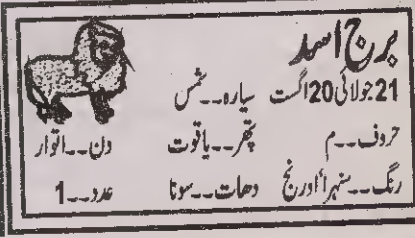 برج اسد
21جولائی20اگست سیارہ۔۔شمس
حروف۔۔م پتھر۔۔یاقوت دن۔۔اتوار
رنگ۔۔سنہرا'اورنج دھات۔۔سونا عدد۔۔1